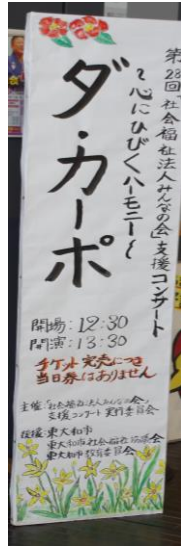 第28回「社会福祉法人みんなの会」支援コンサート
～心にひびくハーモニー～
ダ・カーポ
開場：12:30
開演：13:30
チケット完売につき
当日券はありません
主催：「社会福祉法人みんなの会」
支援コンサート実行委員会
後援：東大和市
東大和市社会福祉協議会
東大和市教育委員会